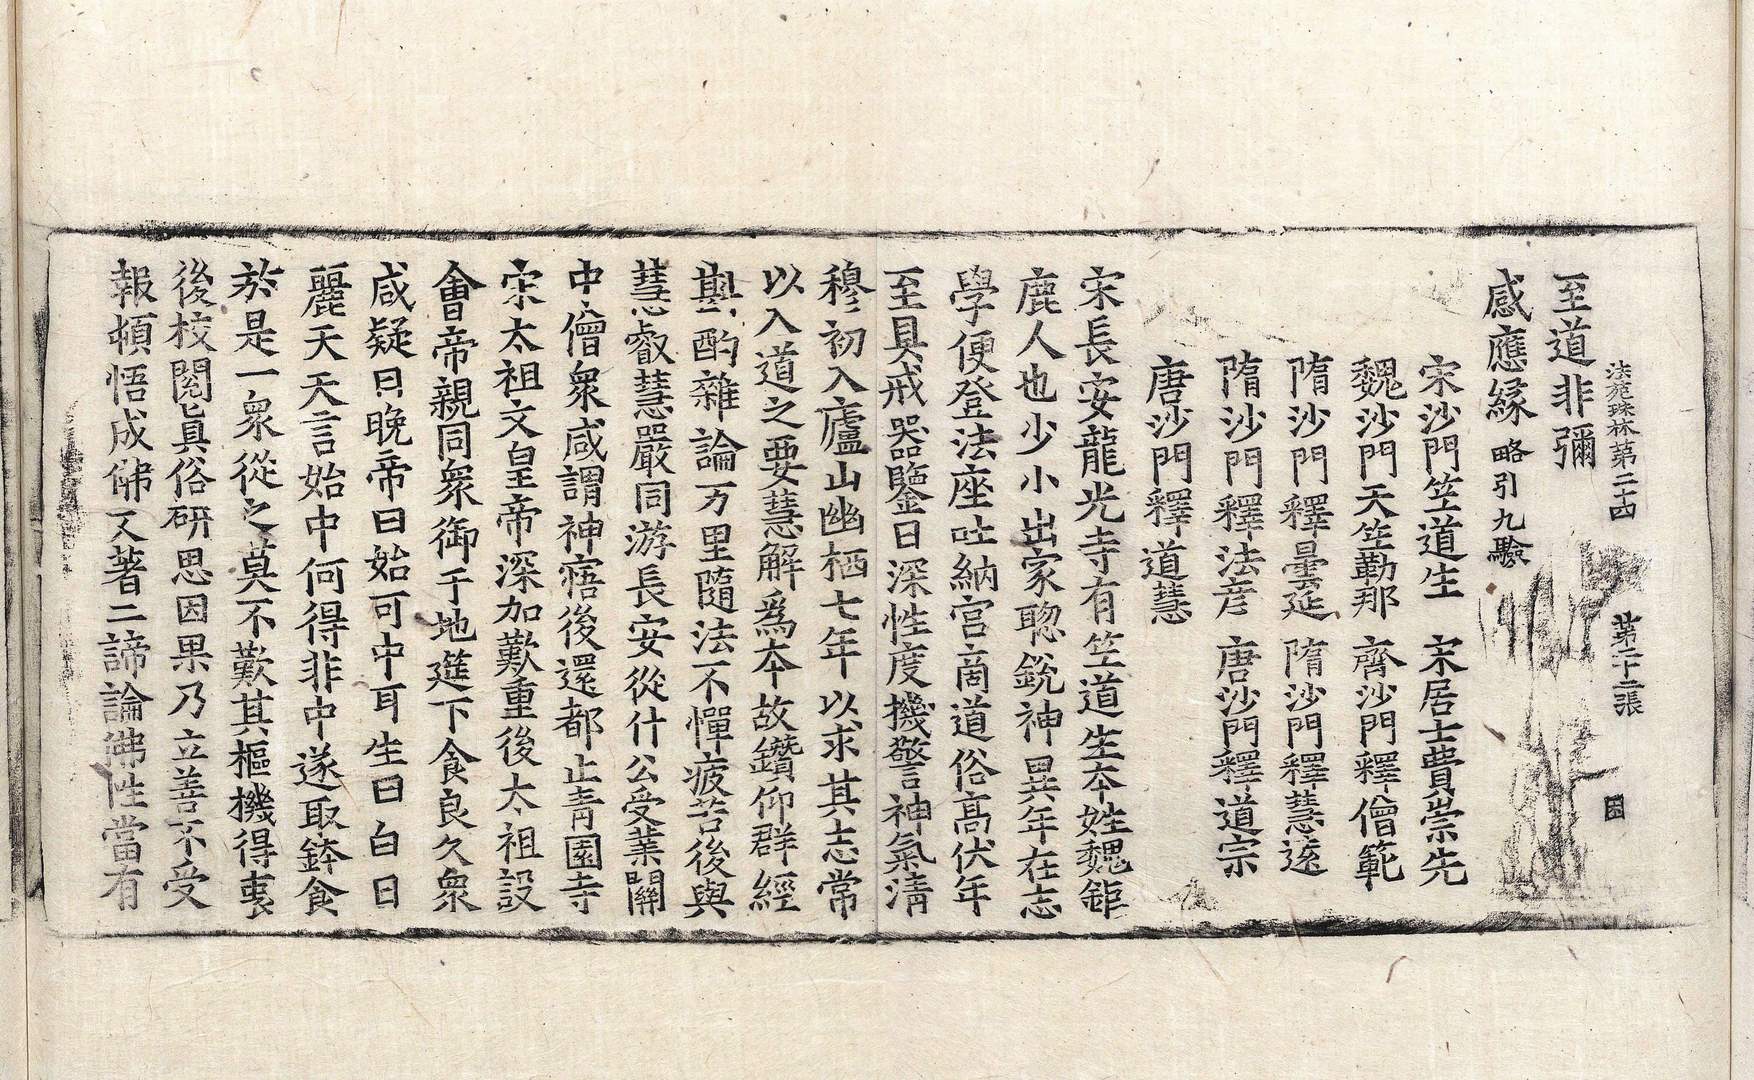 法苑珠林第二十四　第二十二張
至道非彌
感應緣略引九驗
宋沙門竺道生　宋居士費崇先
魏沙門天竺勒那　齊沙門釋僧範
隋沙門釋曇延　隋沙門釋慧遠
隋沙門釋法彦　唐沙門釋道宗
唐沙門釋道慧
宋長安龍光寺有竺道生本姓魏鉅
鹿人也少小出家聦銳神異年在志
學便登法座吐納宮商道俗高伏年
至具戒器鑒日深性度機警神氣淸
穆初入廬山幽栖七年以求其志常
以入道之要慧解爲本故鑽仰群經
斟酌雜論万里隨法不憚疲苦後與
慧叡慧嚴同游長安從什公受業關
中僧衆咸謂神寤後還都止靑園寺
宋太祖文皇帝深加歎重後太祖設
會帝親同衆御于地筵下食良久衆
咸疑日晚帝曰始可中耳生曰白日
麗天天言始中何得非中遂取鉢食
於是一衆從之莫不歎其樞機得衷
後校閱眞俗研思因果乃立善不受
報頓悟成佛又著二諦論佛性當有